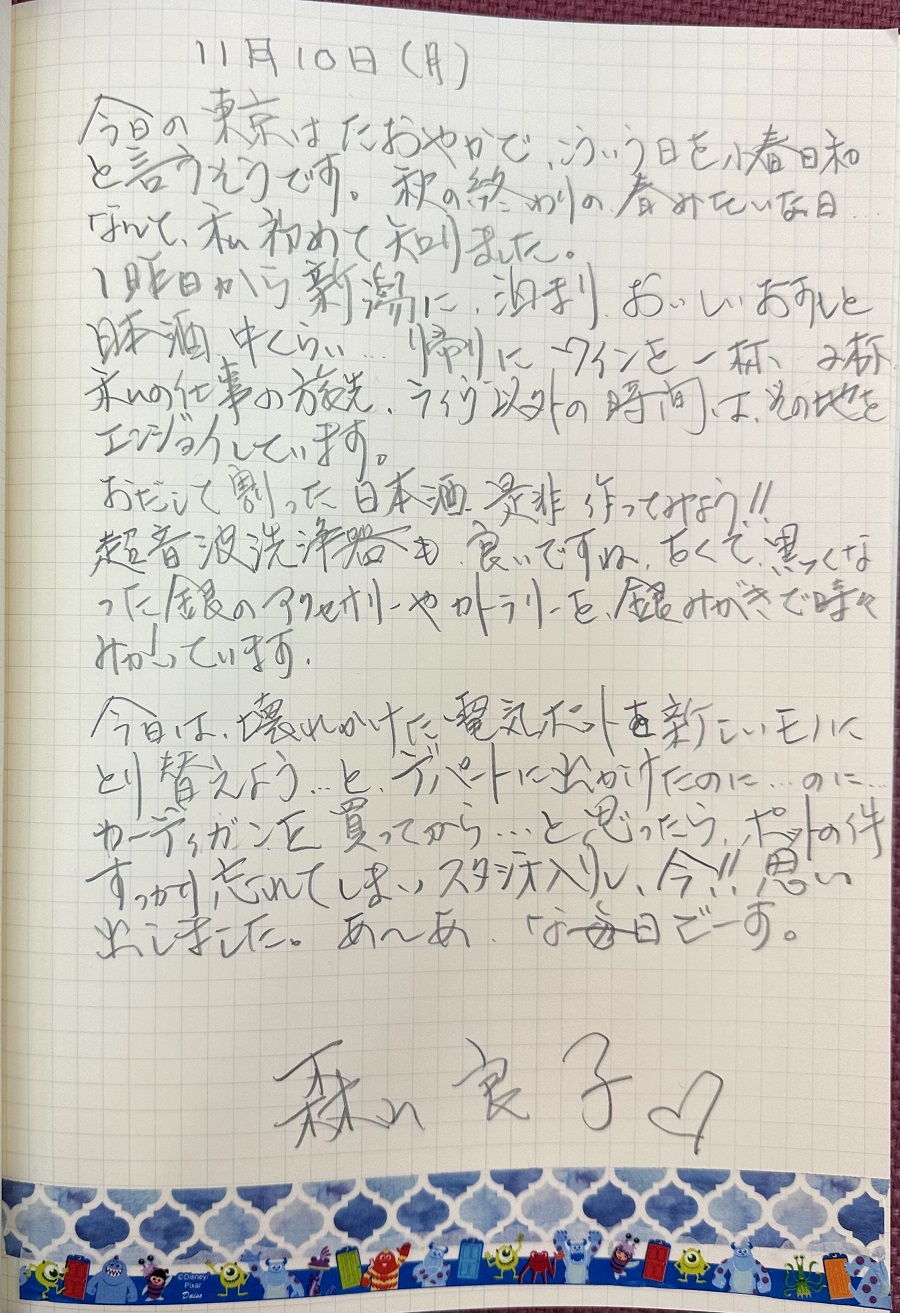 11月10日(月)
今日の東京はたおやかで、こういう日を小春日和
と言うそうです。秋の終わりの春みたいな日
なんて、私初めて知りました。
1昨日から新潟に、泊まり、おいしいおすしと
日本酒、中くらい…帰りにワインを一杯、2杯
私の仕事の旅先、ライヴ以外の時間は、その地を
エンジョイしています。
おだしで割った日本酒、是非作ってみよう!!
超音波洗浄器も、良いですね、古くて、黒っくな
った銀のアクセサリーやカトラリーを、銀みがきで時々
みがいています。
今日は、壊れかけた電気ポットを新しいモノに
とり替えよう…と、デパートに出かけたのに…のに…
カーディガンを買ってから…と思ったら、ポットの件
すっかり忘れてしまい、スタジオ入りし、今!!思い
出しました。あ〜あ、な毎日でーす。
森山良子♡
©Disney/
Pixar
Daiso